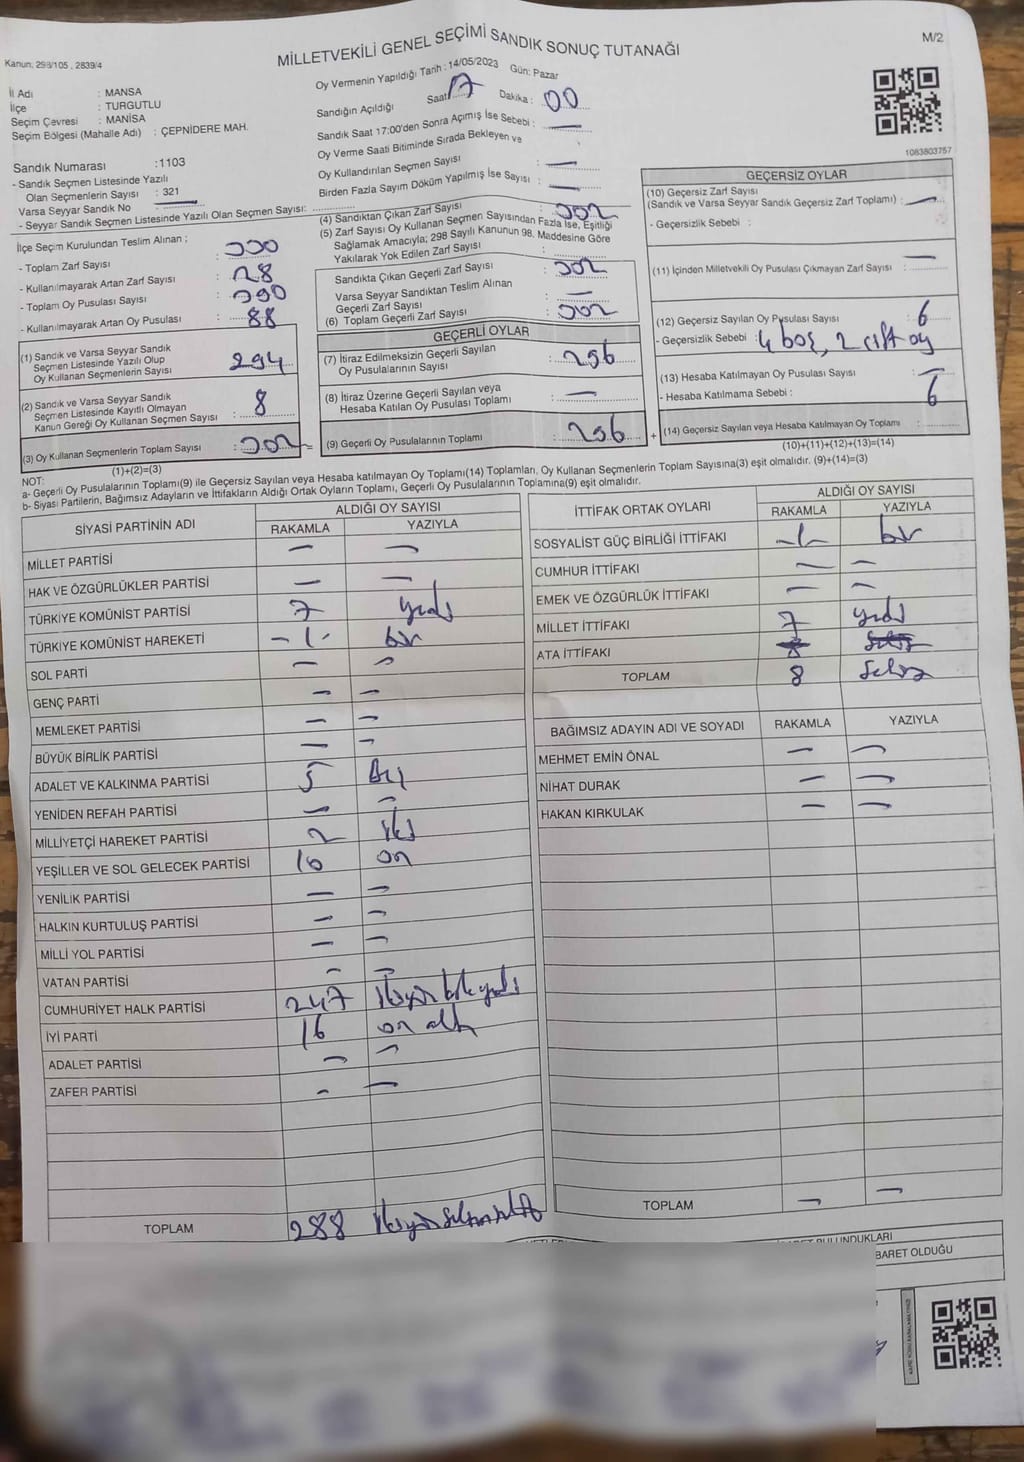 MİLLETVEKİLİ GENEL SEÇİMİ SANDIK SONUÇ TUTANAĞI
M/2
Kanun: 298/105 , 2839/4
İl Adı : MANSA
İlçe : TURGUTLU
Seçim Çevresi : MANİSA
Seçim Bölgesi (Mahalle Adı) : ÇEPNİDERE MAH.
Sandık Numarası :1103
- Sandık Seçmen Listesinde Yazılı
Olan Seçmenlerin Sayısı : 321
Varsa Seyyar Sandık No :
- Seyyar Sandık Seçmen Listesinde Yazılı Olan Seçmen Sayısı:
İlçe Seçim Kurulundan Teslim Alınan ;
- Toplam Zarf Sayısı : 330
- Kullanılmayarak Artan Zarf Sayısı : 28
- Toplam Oy Pusulası Sayısı : 390
- Kullanılmayarak Artan Oy Pusulası : 88
(1) Sandık ve Varsa Seyyar Sandık
Seçmen Listesinde Yazılı Olup
Oy Kullanan Seçmenlerin Sayısı : 294
(2) Sandık ve Varsa Seyyar Sandık
Seçmen Listesinde Kayıtlı Olmayan
Kanun Gereği Oy Kullanan Seçmen Sayısı : 8
(3) Oy Kullanan Seçmenlerin Toplam Sayısı : 302 =
(1)+(2)=(3)
Oy Vermenin Yapıldığı Tarih : 14/05/2023 Gün: Pazar
Sandığın Açıldığı Saat : 17 Dakika : 00
Sandık Saat 17:00'den Sonra Açımış İse Sebebi : —
Oy Verme Saati Bitiminde Sırada Bekleyen ve
Oy Kullandırılan Seçmen Sayısı : —
Birden Fazla Sayım Döküm Yapılmış İse Sayısı : —
(4) Sandıktan Çıkan Zarf Sayısı : 302
(5) Zarf Sayısı Oy Kullanan Seçmen Sayısından Fazla İse, Eşitliği
Sağlamak Amacıyla; 298 Sayılı Kanunun 98. Maddesine Göre
Yakılarak Yok Edilen Zarf Sayısı :
Sandıkta Çıkan Geçerli Zarf Sayısı : 302
Varsa Seyyar Sandıktan Teslim Alınan
Geçerli Zarf Sayısı : —
(6) Toplam Geçerli Zarf Sayısı : 302
GEÇERLİ OYLAR
(7) İtiraz Edilmeksizin Geçerli Sayılan
Oy Pusulalarının Sayısı : 296
(8) İtiraz Üzerine Geçerli Sayılan veya
Hesaba Katılan Oy Pusulası Toplamı : —
(9) Geçerli Oy Pusulalarının Toplamı : 296 +
1083803757
GEÇERSİZ OYLAR
(10) Geçersiz Zarf Sayısı
(Sandık ve Varsa Seyyar Sandık Geçersiz Zarf Toplamı) : —
- Geçersizlik Sebebi :
(11) İçinden Milletvekili Oy Pusulası Çıkmayan Zarf Sayısı : —
(12) Geçersiz Sayılan Oy Pusulası Sayısı : 6
- Geçersizlik Sebebi : 4 boş, 2 çift oy
(13) Hesaba Katılmayan Oy Pusulası Sayısı : —
- Hesaba Katılmama Sebebi :
(14) Geçersiz Sayılan veya Hesaba Katılmayan Oy Toplamı : 6
(10)+(11)+(12)+(13)=(14)
NOT:
a- Geçerli Oy Pusulalarının Toplamı(9) ile Geçersiz Sayılan veya Hesaba katılmayan Oy Toplamı(14) Toplamları, Oy Kullanan Seçmenlerin Toplam Sayısına(3) eşit olmalıdır. (9)+(14)=(3)
b- Siyasi Partilerin, Bağımsız Adayların ve İttifakların Aldığı Ortak Oyların Toplamı, Geçerli Oy Pusulalarının Toplamına(9) eşit olmalıdır.
SİYASİ PARTİNİN ADI
ALDIĞI OY SAYISI
RAKAMLA YAZIYLA
MİLLET PARTİSİ — —
HAK VE ÖZGÜRLÜKLER PARTİSİ — —
TÜRKİYE KOMÜNİST PARTİSİ 7 yedi
TÜRKİYE KOMÜNİST HAREKETİ -1- bir
SOL PARTİ — —
GENÇ PARTİ — —
MEMLEKET PARTİSİ — —
BÜYÜK BİRLİK PARTİSİ — —
ADALET VE KALKINMA PARTİSİ 5 Beş
YENİDEN REFAH PARTİSİ — —
MİLLİYETÇİ HAREKET PARTİSİ 2 iki
YEŞİLLER VE SOL GELECEK PARTİSİ 10 on
YENİLİK PARTİSİ — —
HALKIN KURTULUŞ PARTİSİ — —
MİLLİ YOL PARTİSİ — —
VATAN PARTİSİ — —
CUMHURİYET HALK PARTİSİ 247 ikiyüz kırk yedi
İYİ PARTİ 16 on altı
ADALET PARTİSİ — —
ZAFER PARTİSİ — —
TOPLAM 288
İTTİFAK ORTAK OYLARI
ALDIĞI OY SAYISI
RAKAMLA YAZIYLA
SOSYALİST GÜÇ BİRLİĞİ İTTİFAKI -1- bir
CUMHUR İTTİFAKI — —
EMEK VE ÖZGÜRLÜK İTTİFAKI — —
MİLLET İTTİFAKI 7 yedi
ATA İTTİFAKI
TOPLAM 8 Sekiz
BAĞIMSIZ ADAYIN ADI VE SOYADI RAKAMLA YAZIYLA
MEHMET EMİN ÖNAL — —
NİHAT DURAK — —
HAKAN KIRKULAK — —
TOPLAM — —
BULUNDUKLARI
BARET OLDUĞU